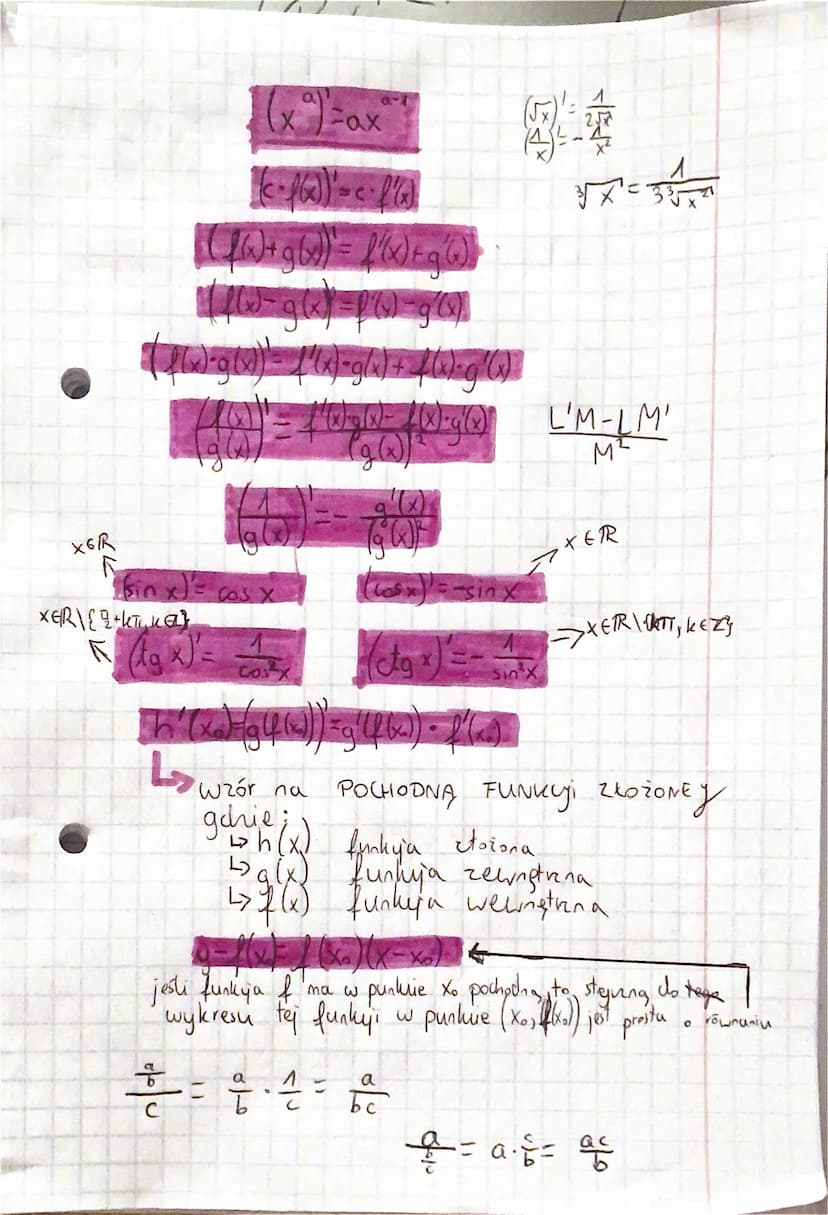 (x^a)' = ax^(a-1)
(√x)' = 1/(2√x)
(1/x)' = -1/x²
(c·f(x))' = c·f'(x)
∛x' = 1/(3∛x²)
(f(x)+g(x))' = f'(x)+g'(x)
(f(x)-g(x))' = f'(x)-g'(x)
(f(x)·g(x))' = f'(x)·g(x) + f(x)·g'(x)
(f(x)/g(x))' = (f'(x)·g(x) - f(x)·g'(x))/(g(x))²
(L'M - LM')/M²
(1/g(x))' = - g'(x)/(g(x))²
x∈ℝ
x∈ℝ
(sin x)' = cos x
(cos x)' = -sin x
x∈ℝ\{π/2+kπ, k∈Z}
x∈ℝ\{kπ, k∈Z}
(tg x)' = 1/cos²x
(ctg x)' = - 1/sin²x
h'(x₀) = (g(f(x₀)))' = g'(f(x₀)) · f'(x₀)
↳ wzór na POCHODNĄ FUNKCJI ZŁOŻONEJ
gdzie:
↳ h(x) funkcja złożona
↳ g(x) funkcja zewnętrzna
↳ f(x) funkcja wewnętrzna
y-f(x₀) = f'(x₀)(x-x₀)
jeśli funkcja f ma w punkcie x₀ pochodną, to styczną do tego
wykresu tej funkcji w punkcie (x₀, f(x₀)) jest prosta o równaniu
(a/b)/c = a/b · 1/c = a/bc
a/(b/c) = a · c/b = ac/b